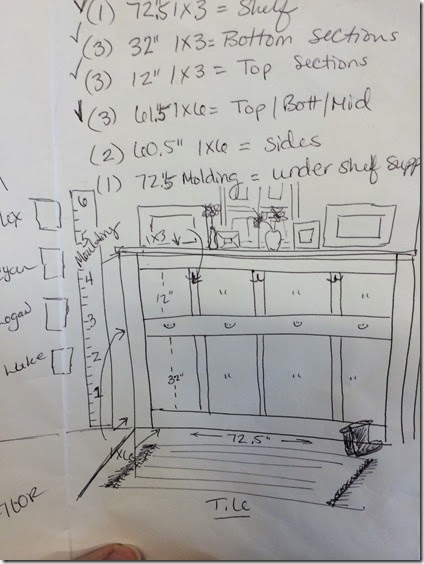 √(1) 72.5 1x3 = Shelf
√(3) 32" 1x3 = Bottom sections
√(3) 12" 1x3 = Top Sections
√(3) 61.5 1x6 = Top/Bott/Mid
(2) 60.5" 1x6 = sides
(1) 72.5 Molding = under shelf supp
6
5
Moulding
4
3
2
1
1x3
12"
"
"
"
32"
"
"
"
72.5"
1x6
Tile
Logan
Luke